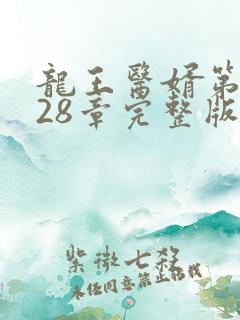 龍王醫婿第
28章完整版
紫微七殺
未經同意禁止轉載